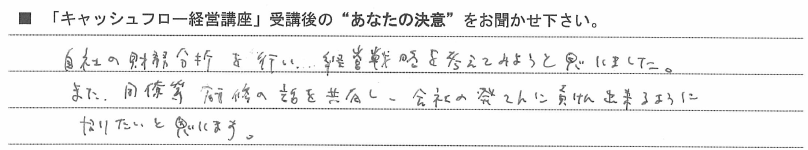 ■ 「キャッシュフロー経営講座」受講後の“あなたの決意”をお聞かせ下さい。
自社の財務分析を行い、経営戦略を考えてみようと思いました。
また、同僚等 研修の話を共有し、会社の発てんに貢けん出来るように
なりたいと思います。